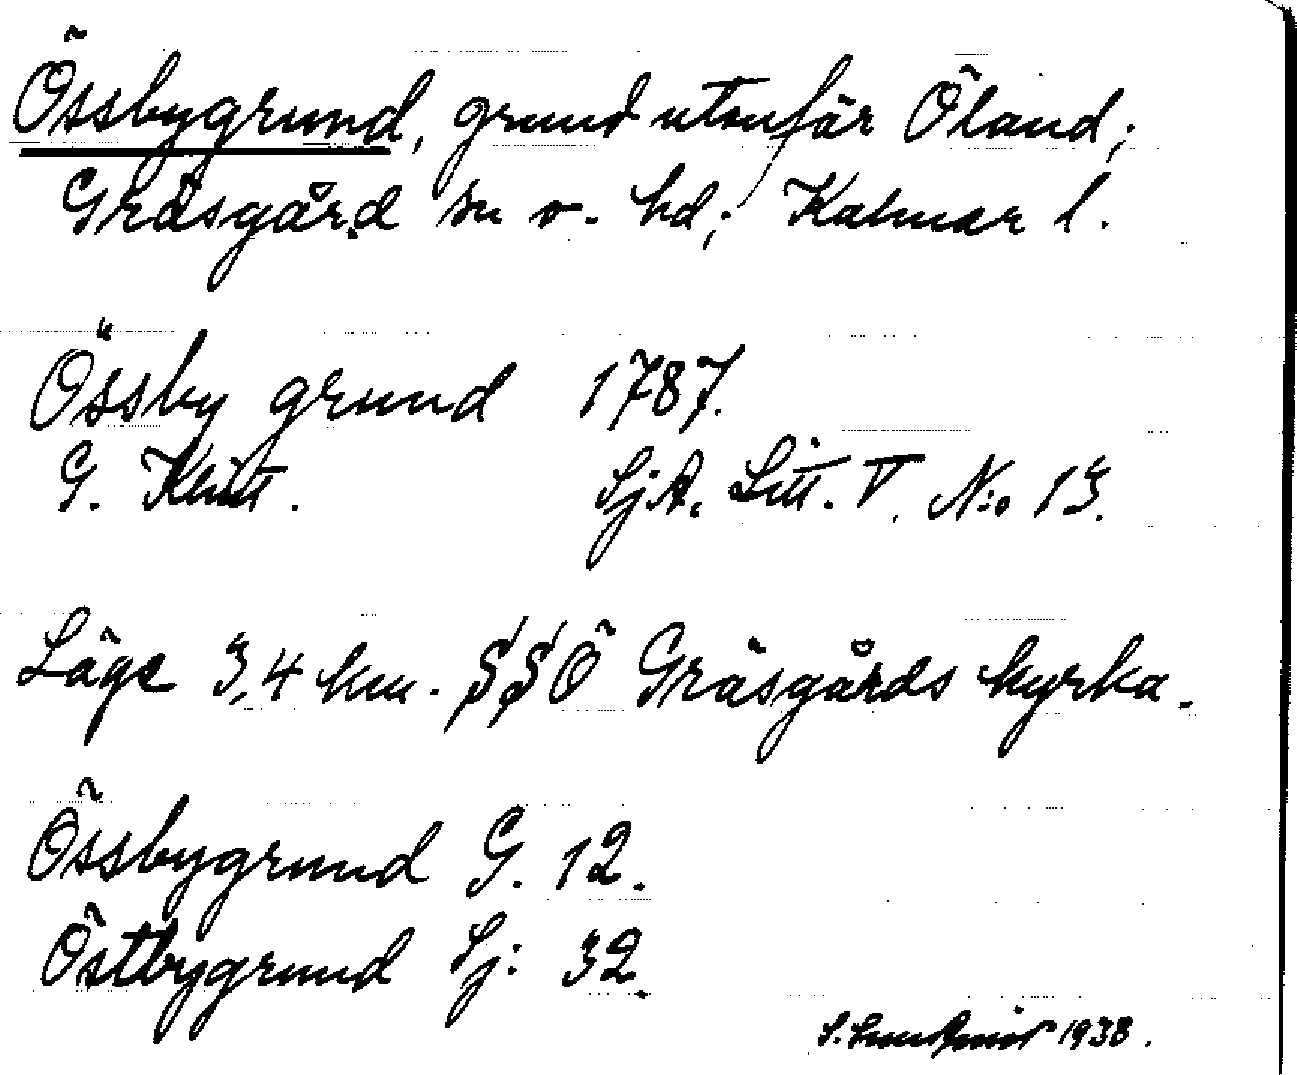 Össbygrund, grund utanför Öland;
Gräsgård sn o. hd; Kalmar l.
Össby grund 1787.
G. Klint. SjA. Litt. V. N:o 13.
Läge 3,4 km. SSÖ Gräsgårds kyrka.
Össbygrund G. 12.
Östbygrund Sj: 32.
S. 1938.